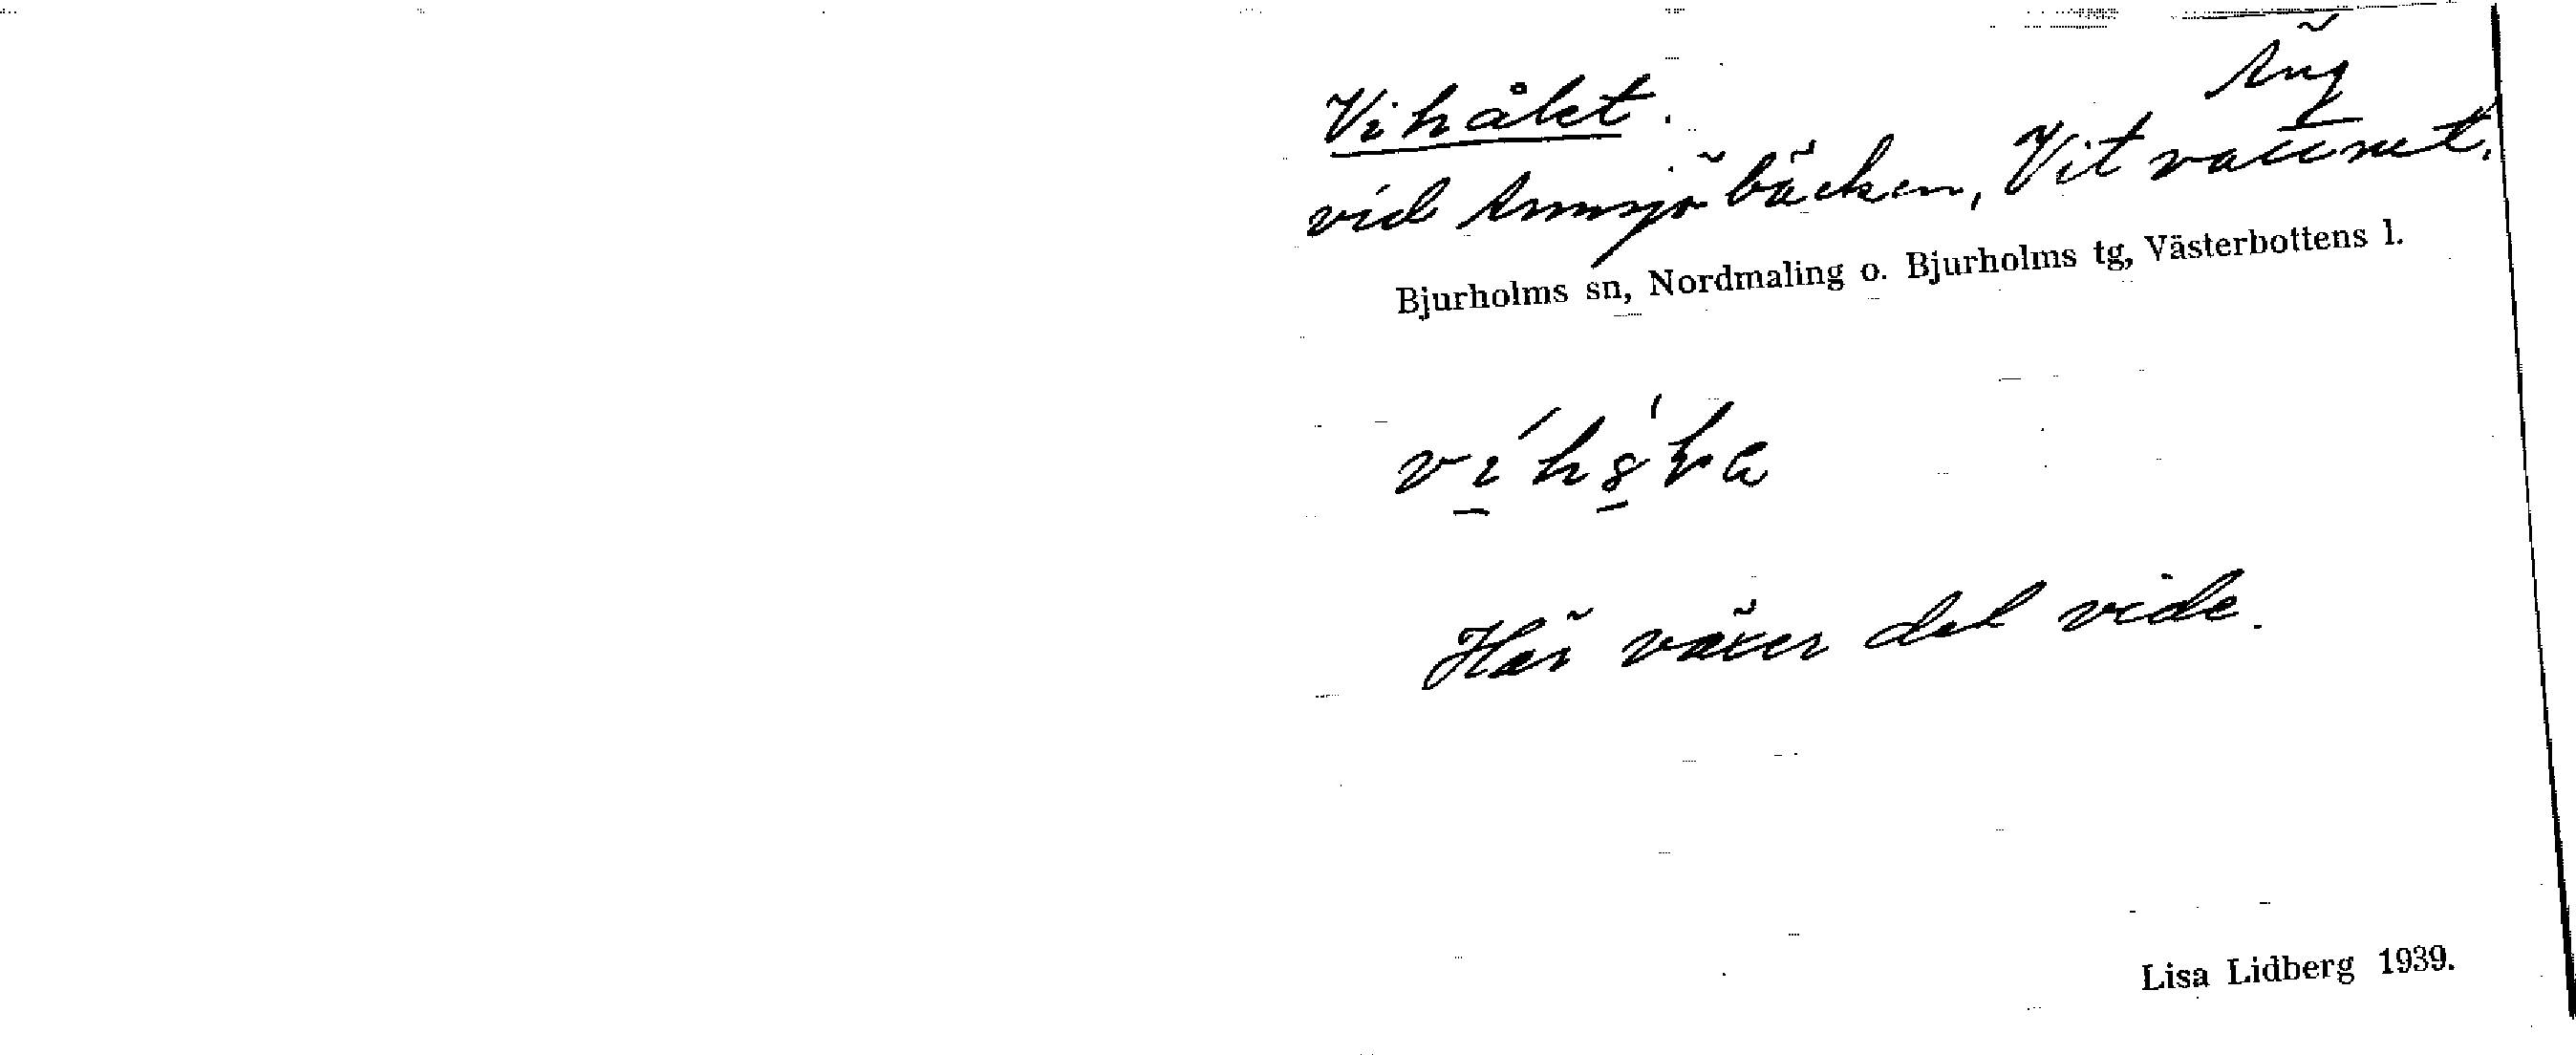 Äng
Vihålet.
vid Armsjöbäcken, Vitvattnet.
Bjurholms sn, Nordmaling o. Bjurholms tg, Västerbottens l.
Här växer det vide.
Lisa Lidberg 1939.